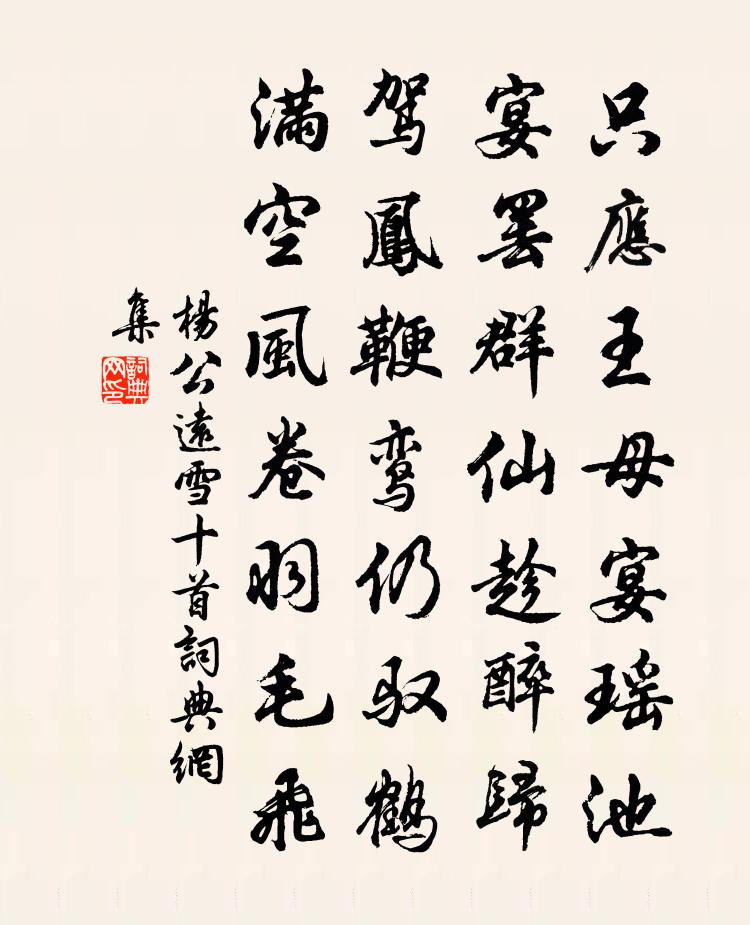 只應王母宴瑶池
宴罢群仙趁醉歸
驾鳳鞭鸾仍驭鹤
满空風卷羽毛飛
楊公遠雪十首詞典網
集
詞典
网印